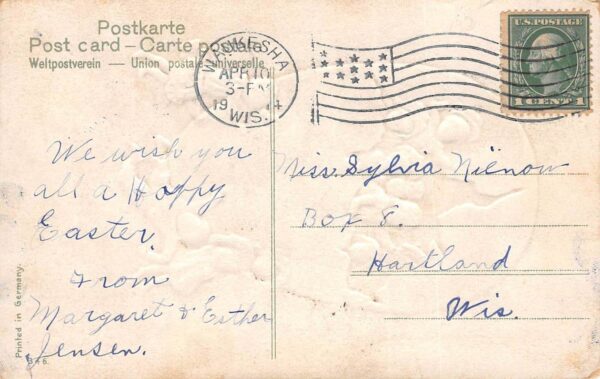 Postkarte
Post card – Carte postale
Weltpostverein — Union postale universelle
WAUKESHA
APR 10
3-PM
19 14
WIS.
U.S. POSTAGE
1 CENT 1
We wish you
all a Happy
Easter.
From
Margaret & Esther
Jensen.
Miss. Sylvia Nienow
Box 8.
Hartland
Wis.
Printed in Germany.